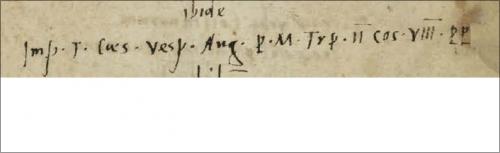 ibide
Imp · T · Cæs · Vesp · Aug · P · M · Tr p · II Cos · VIII · PP